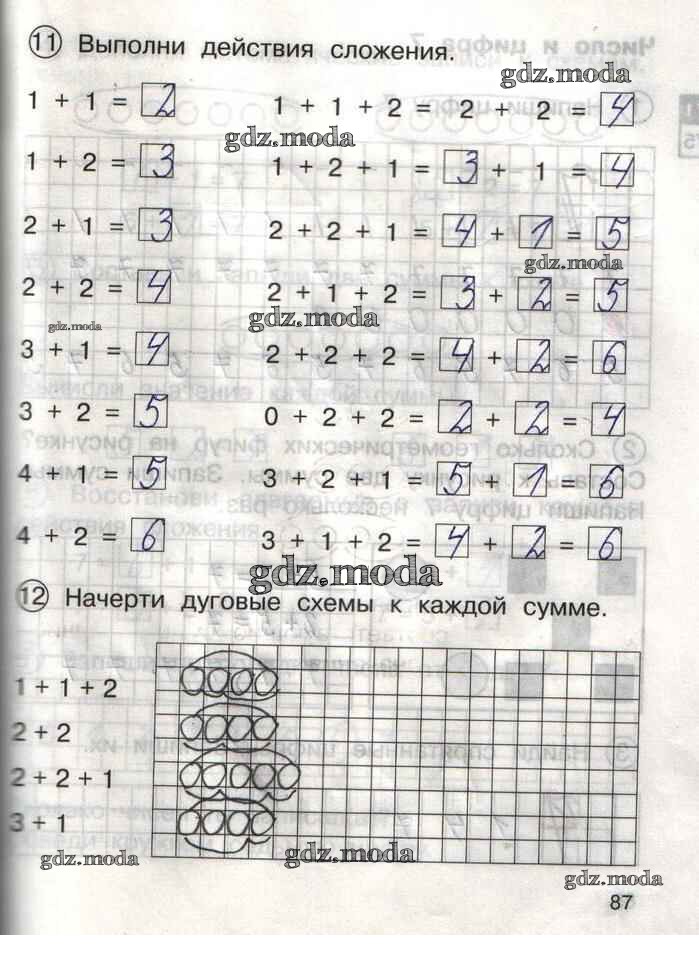 11 Выполни действия сложения.
gdz.moda
1 + 1 = 2 1 + 1 + 2 = 2 + 2 = 4
gdz.moda
1 + 2 = 3 1 + 2 + 1 = 3 + 1 = 4
2 + 1 = 3 2 + 2 + 1 = 4 + 1 = 5
gdz.moda
2 + 2 = 4 2 + 1 + 2 = 3 + 2 = 5
gdz.moda gdz.moda
3 + 1 = 4 2 + 2 + 2 = 4 + 2 = 6
3 + 2 = 5 0 + 2 + 2 = 2 + 2 = 4
4 + 1 = 5 3 + 2 + 1 = 5 + 1 = 6
4 + 2 = 6 3 + 1 + 2 = 4 + 2 = 6
gdz.moda
12 Начерти дуговые схемы к каждой сумме.
1 + 1 + 2
2 + 2
2 + 2 + 1
3 + 1
gdz.moda gdz.moda
gdz.moda
87